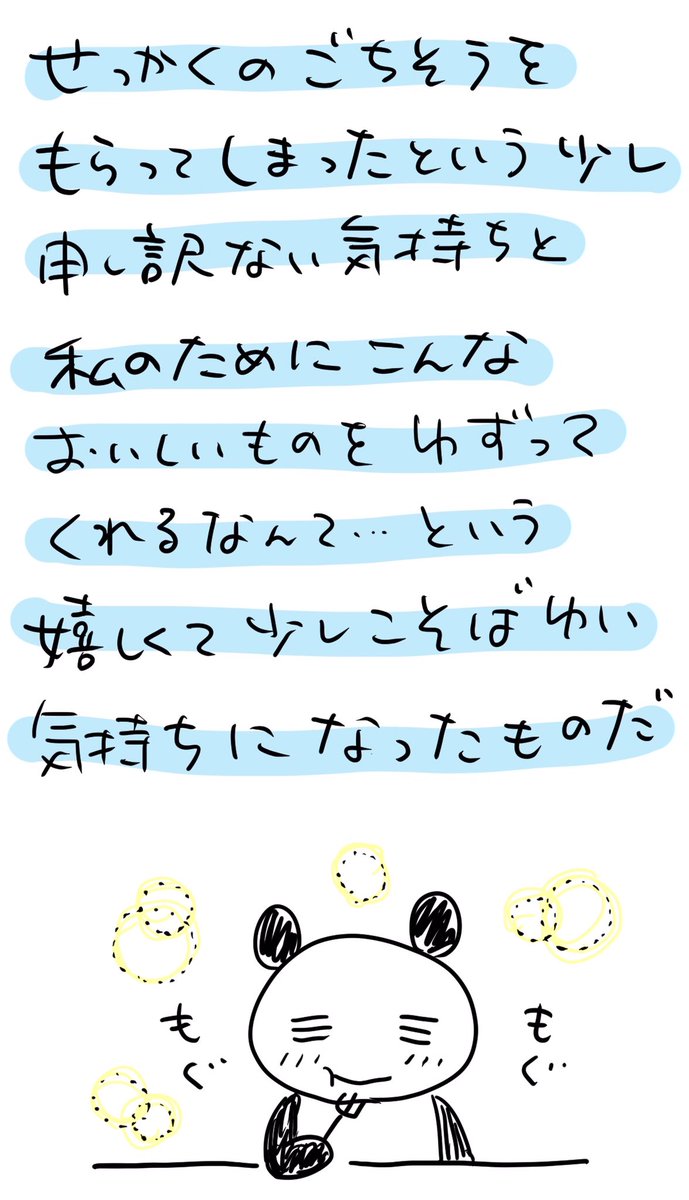 せっかくのごちそうを
もらってしまったという少し
申し訳ない気持ちと
私のためにこんな
おいしいものをゆずって
くれるなんて…という
嬉しくて少しこそばゆい
気持ちになったものだ
もぐ
もぐ…